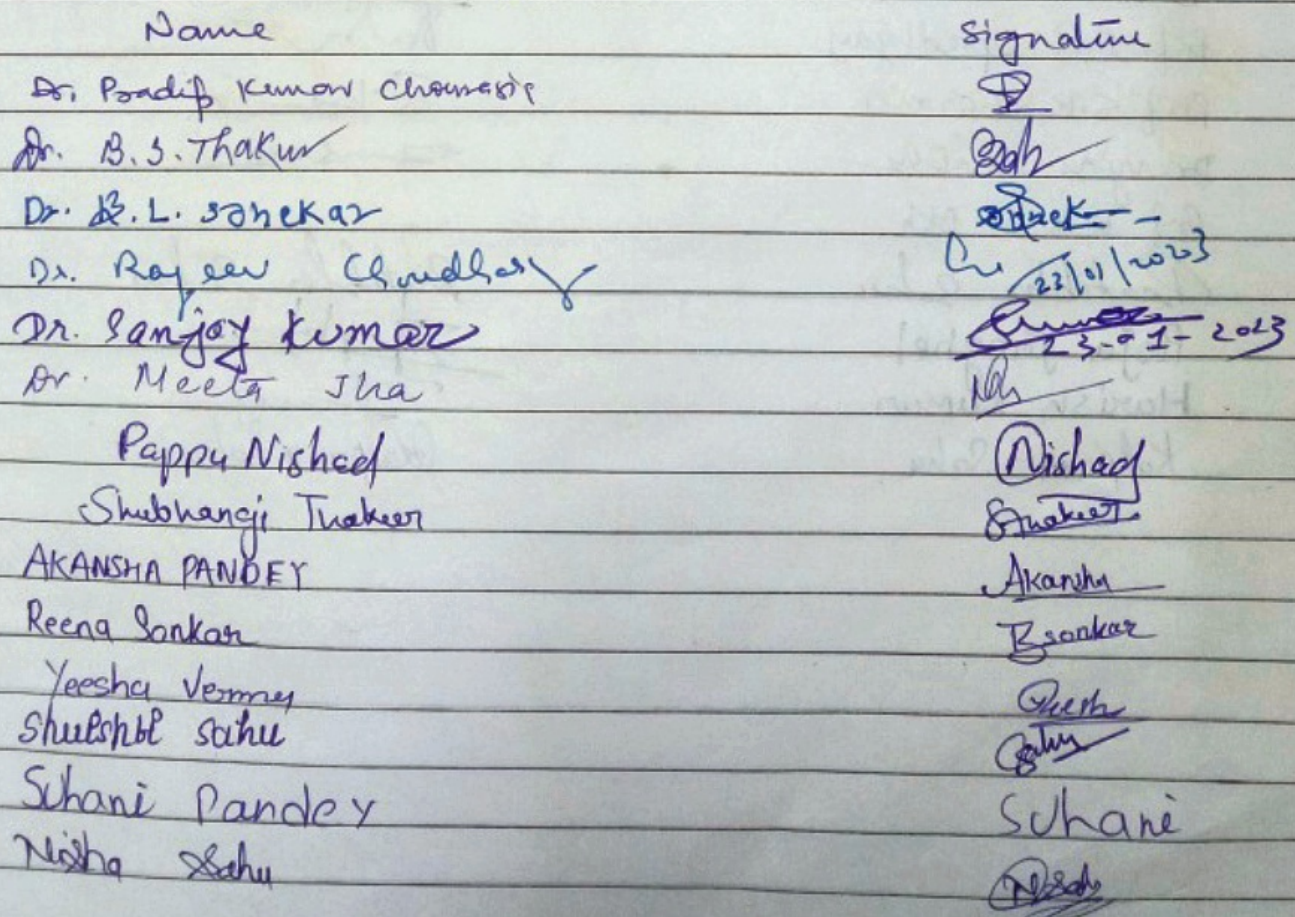 Name Signature
Dr. Pradip Kumar Chourasia
Dr. B.S. Thakur
Dr. B.L. Sonekar
Dr. Rajeev Choudhary 23/01/2023
Dr. Sanjay Kumar 23-01-2023
Dr. Meeta Jha
Pappu Nishad Nishad
Shubhangi Thakur Thakur
AKANSHA PANDEY Akansha
Reena Sonkar Rsonkar
Yeesha Verma
sahu Sahu
Suhani Pandey Suhani
Nisha Sahu